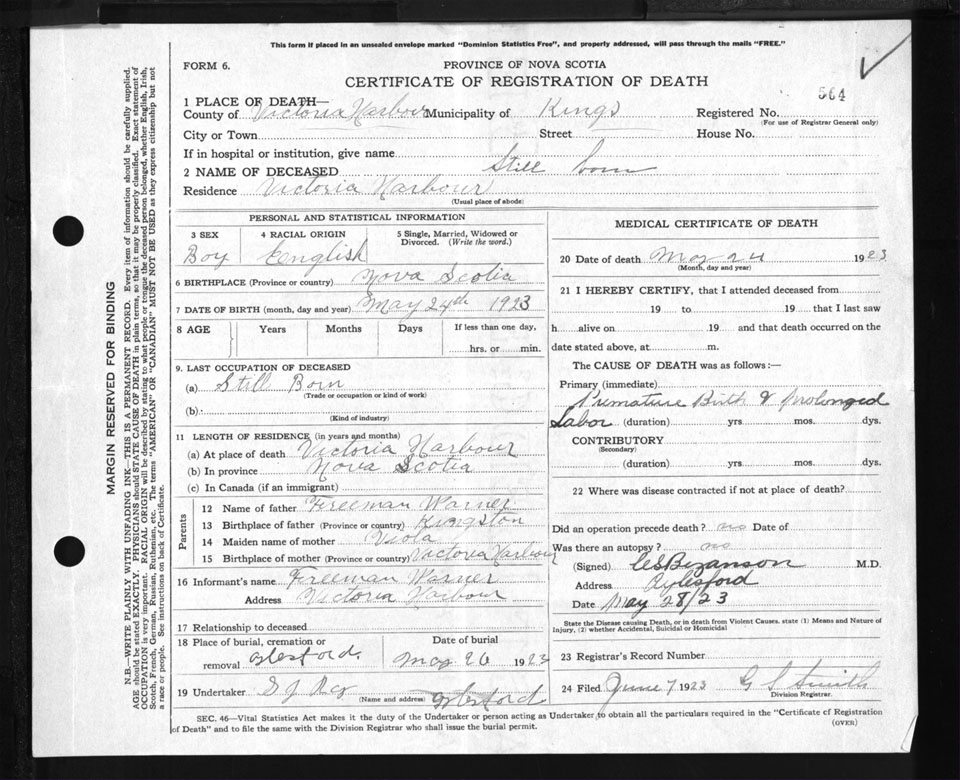 This form if placed in an unsealed envelope marked "Dominion Statistics Free", and properly addressed, will pass through the mails "FREE."
FORM 6.
PROVINCE OF NOVA SCOTIA
CERTIFICATE OF REGISTRATION OF DEATH
564
1 PLACE OF DEATH—
County of Victoria Harbour Municipality of Kings Registered No.
(For use of Registrar General only)
City or Town Street House No.
If in hospital or institution, give name
2 NAME OF DECEASED Still born
Residence Victoria Harbour
(Usual place of abode)
PERSONAL AND STATISTICAL INFORMATION
3 SEX 4 RACIAL ORIGIN 5 Single, Married, Widowed or Divorced. (Write the word.)
Boy English
6 BIRTHPLACE (Province or country) Nova Scotia
7 DATE OF BIRTH (month, day and year) May 24th 1923
8 AGE Years Months Days If less than one day,
hrs. or min.
9. LAST OCCUPATION OF DECEASED
(a) Still Born
(Trade or occupation or kind of work)
(b)
(Kind of industry)
11 LENGTH OF RESIDENCE (in years and months)
(a) At place of death Victoria Harbour
(b) In province Nova Scotia
(c) In Canada (if an immigrant)
Parents
12 Name of father Freeman Warner
13 Birthplace of father (Province or country) Kingston
14 Maiden name of mother Viola
15 Birthplace of mother (Province or country) Victoria Harbour
16 Informant's name Freeman Warner
Address Victoria Harbour
17 Relationship to deceased
18 Place of burial, cremation or removal Date of burial
May 26 1923
19 Undertaker S J
(Name and address)
MEDICAL CERTIFICATE OF DEATH
20 Date of death May 24 1923
(Month, day and year)
21 I HEREBY CERTIFY, that I attended deceased from
19 to 19 that I last saw
h alive on 19 and that death occurred on the
date stated above, at m.
The CAUSE OF DEATH was as follows:—
Primary (immediate)
Premature Birth & Prolonged
Labor (duration) yrs mos. dys.
CONTRIBUTORY
(Secondary)
(duration) yrs. mos. dys.
22 Where was disease contracted if not at place of death?
Did an operation precede death? no Date of
Was there an autopsy? no
(Signed) M.D.
Address Aylesford
Date May 28/23
State the Disease causing Death, or in death from Violent Causes. state (1) Means and Nature of
Injury, (2) whether Accidental, Suicidal or Homicidal
23 Registrar's Record Number
24 Filed June 7 1923 G S Smith
Division Registrar.
SEC. 46—Vital Statistics Act makes it the duty of the Undertaker or person acting as Undertaker to obtain all the particulars required in the "Certificate of Registration
of Death" and to file the same with the Division Registrar who shall issue the burial permit.
(OVER)
MARGIN RESERVED FOR BINDING
N.B.—WRITE PLAINLY WITH UNFADING INK—THIS IS A PERMANENT RECORD. Every item of information should be carefully supplied.
AGE should be stated EXACTLY. PHYSICIANS should STATE CAUSE OF DEATH in plain terms, so that it may be properly classified. Exact statement of
OCCUPATION is very important. RACIAL ORIGIN will be described by stating to what people or tongue the deceased person belonged, whether English, Irish,
Scotch, French, German, Russian, Ruthenian, etc. The terms "AMERICAN" OR "CANADIAN" MUST NOT BE USED as they express citizenship but not
a race or people. See instructions on back of Certificate.